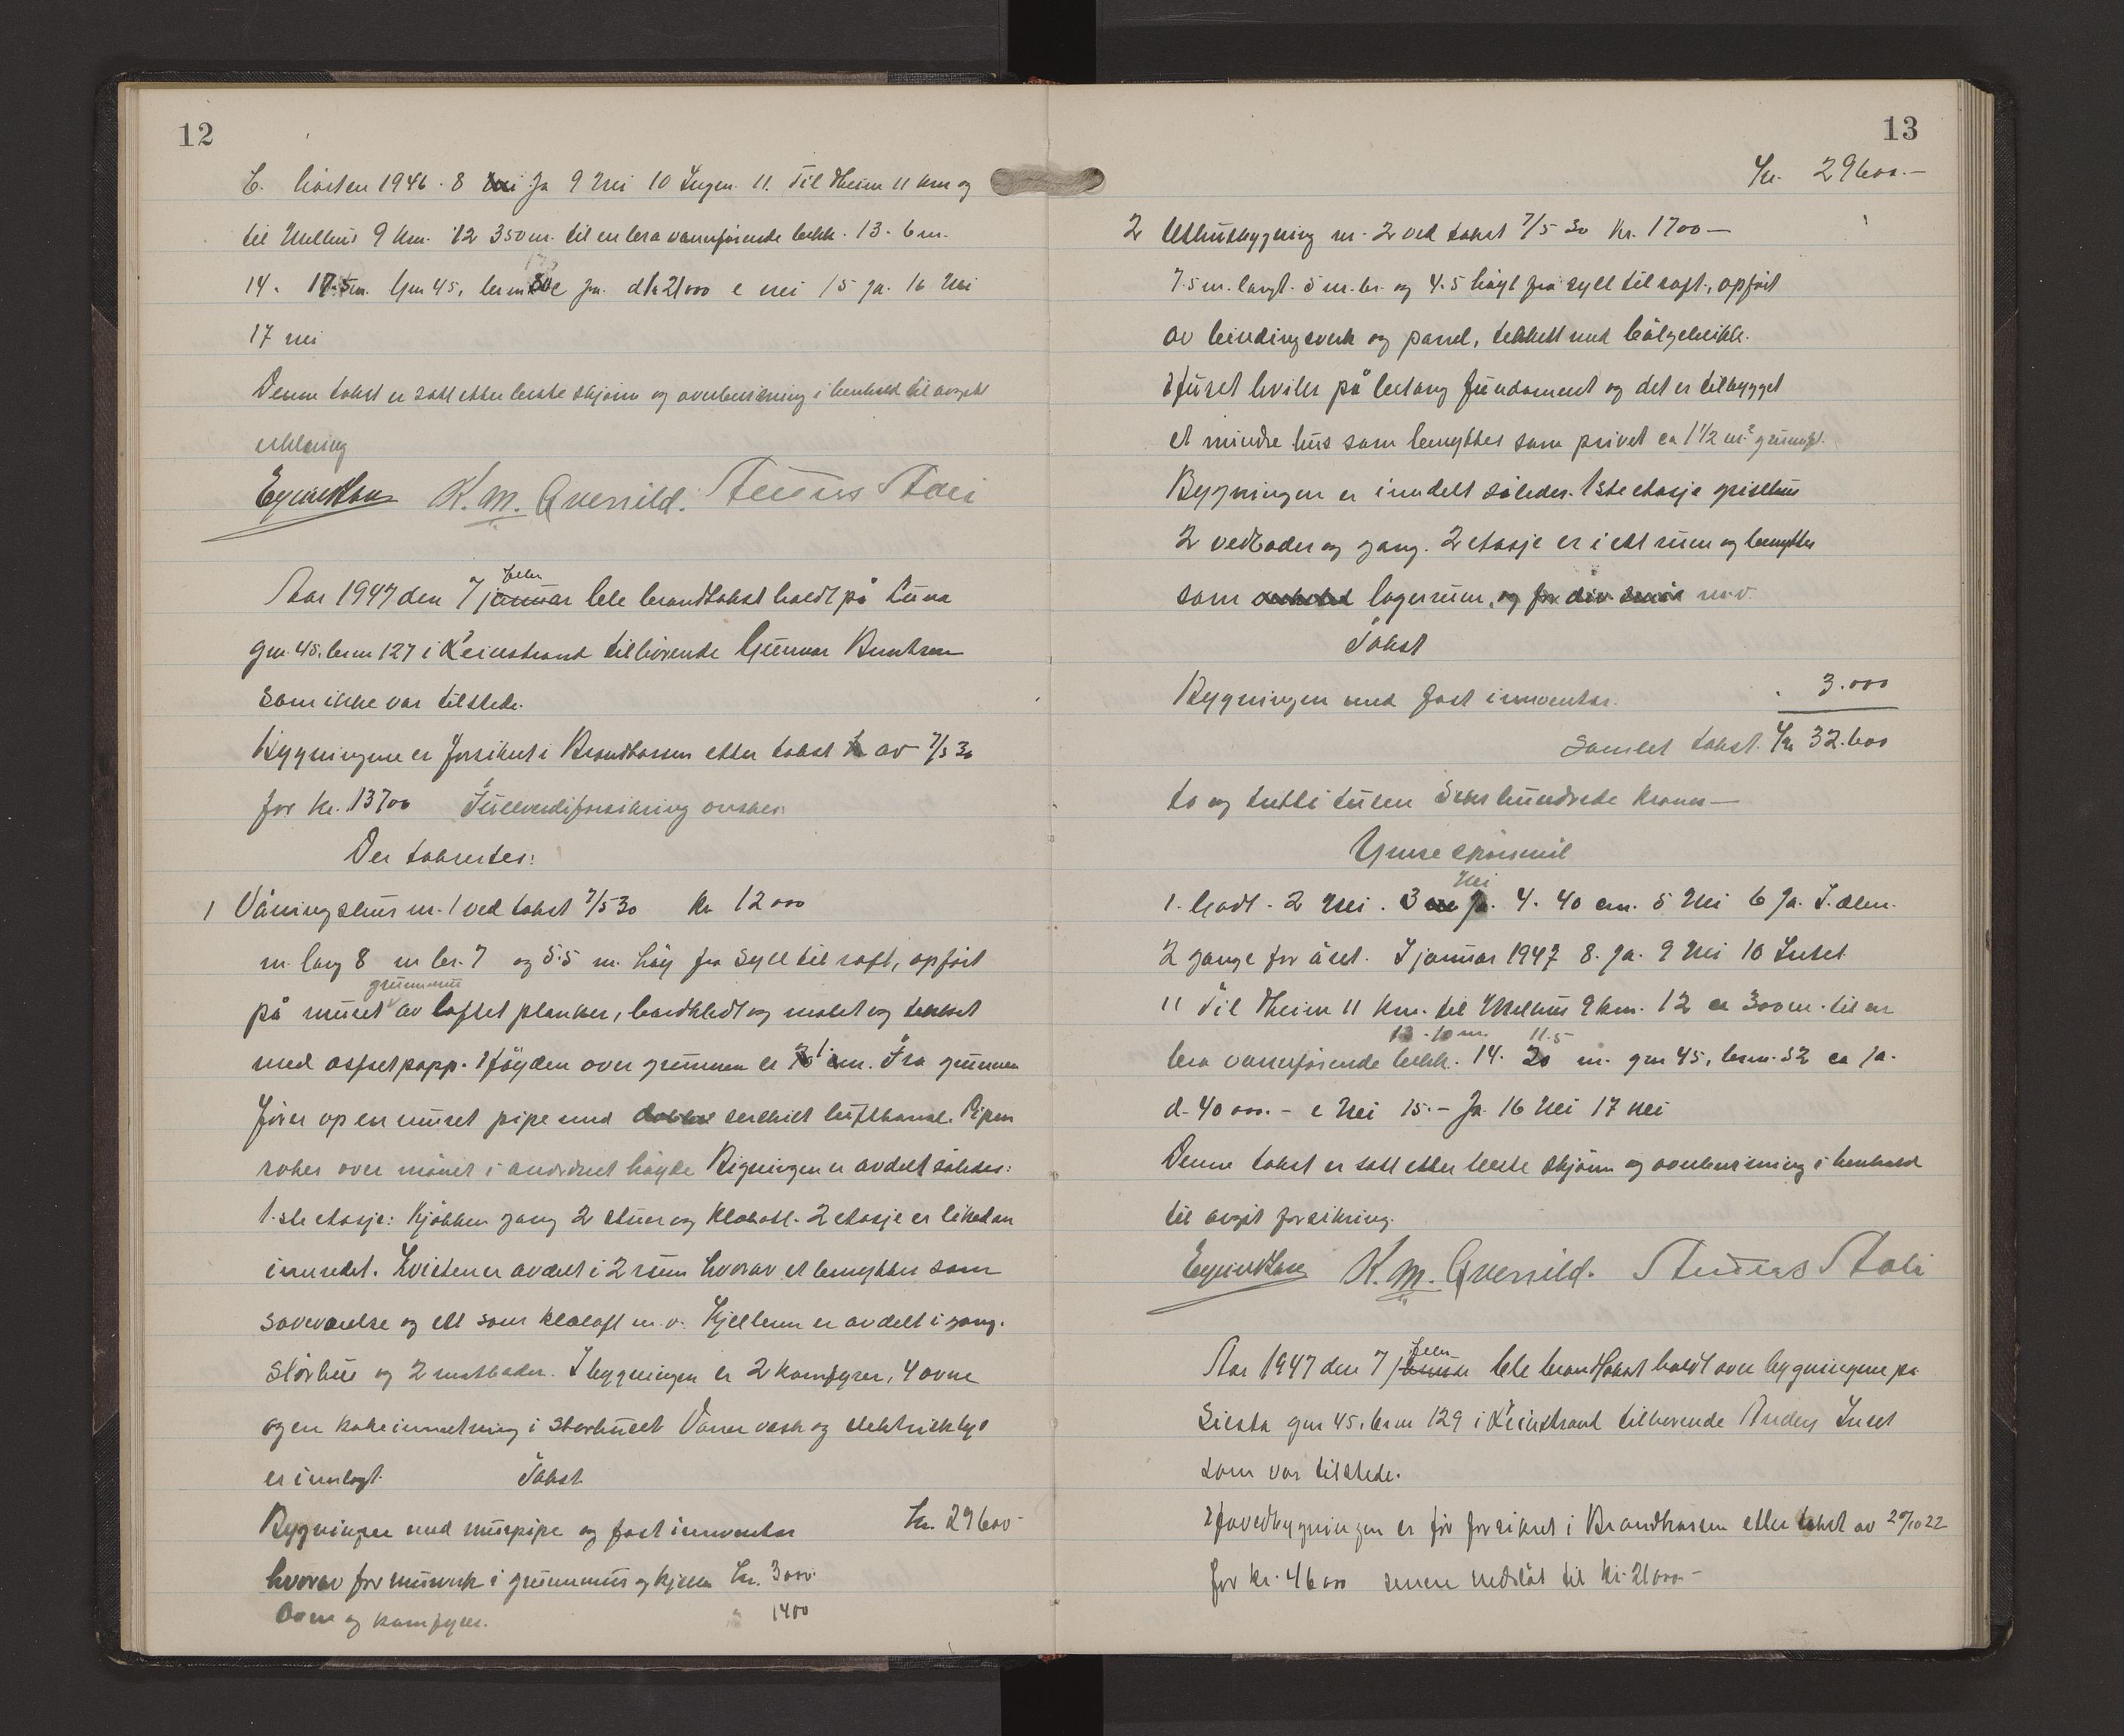 12
6. hösten 1946. 8 Ja 9 Nei 10 Ingen. 11. Til Dheim 11 km og
til Melhus 9 km. 12 350 m. til en bra vannförende bekk. 13. 6 m.
14. 17.5 m. Gnr 45, brnr e nei 15 ja. 16 Nei
17 nei
Denne takst er satt etter beste skjönn og overbevisning i henhold til avgit
erklæring
K. M. Qvenild.
Aar 1947 den 7 januar febr ble brandtakst holdt på Luna
gnr. 45. brnr 127 i Leinstrand tilhörende Gunnar Berntsen
som ikke var tilstede.
Bygningene er forsikret i Brandkassen etter takst av 7/5 30
for kr. 13700 Fullverdiforsikring önskes.
Der takseres:
1 Våningshus nr. 1 ved takst 7/5 30 kr 12000
m. lang 8 m br. 7 og 5.5 m. höy fra syll til raft, opfört
grunnmur
på muret av laftet planker, bordkledt og malet og tekket
med asfaltpapp. Höyden over grunnen er m. Fra grunnen
förer op en muret pipe med serskilt luftkanal. Pipen
raker over mönet i anordnet höyde Bygningen er avdelt således:
1.ste etasje: Kjökken gang 2 stuer og kloset. 2 etasje er likedan
innredet. Kvisten er avdelt i 2 rum hvorav et benyttes som
soveværelse og ett som kleloft m.v. Kjelleren er avdelt i gang.
störhus og 2 matboder. I bygningen er 2 komfyrer, 4 ovne
og en kokeinnretning i störhuset Vann vask og elektrisk lys
er innlagt. Takst
Bygningen med murpipe og fast inventar kr. 29600-
hvorav for murverk i grunnmur og kjeller kr. 3000.
Ovne og komfyrer. " 1400
13
Kr. 29600.-
2 Uthusbygning nr. 2 ved takst 7/5 30 Kr. 1700-
7.5 m. langt. 5 m. br. og 4.5 höyt fra syll til raft, opfört
av bindingsverk og panel, tekket med bölgeblikk.
Huset hviler på betong fundament og det er tilbygget
et mindre hus som benyttes som privet ca 1 1/2 m² grunnfl.
Bygningen er inndelt således. 1ste etasje grisehus
2 vedboder og gang. 2 etasje er i ett rum og benyttes
som lagerrum, og for div. m.v.
Takst
Bygningen med fast inventar. " 3.000
Samlet takst. Kr 32.600
to og tretti tusen sekshundrede kroner-
Ymse spörsmål
1. Godt. 2 Nei. 3 Nei 4. 40 cm. 5 Nei 6 Ja. I. alm.
2 gange for året. I januar 1947 8. Ja. 9 Nei 10 Intet.
11 Til Dheim 11 km. til Melhus 9 km. 12 ca 300 m. til en
13. 10 m. 11.5
bra vannförende bekk. 14. m. gnr 45, brnr. 52 ca ja.
d. 40 000.- e Nei 15.- Ja. 16 Nei 17 nei
Denne takst er satt etter beste skjönn og overbevisning i henhold
til avgit forsikring.
K. M. Qvenild.
Aar 1947 den 7 febr ble brandtakst holdt over bygningene på
Siesta gnr 45. brnr 129 i Leinstrand tilhörende Anders Inset
som var tilstede.
Hovedbygningen er för forsikret i Brandkassen etter takst av 20/10 22
for kr. 46000 senere nedslåt til kr. 21000.-